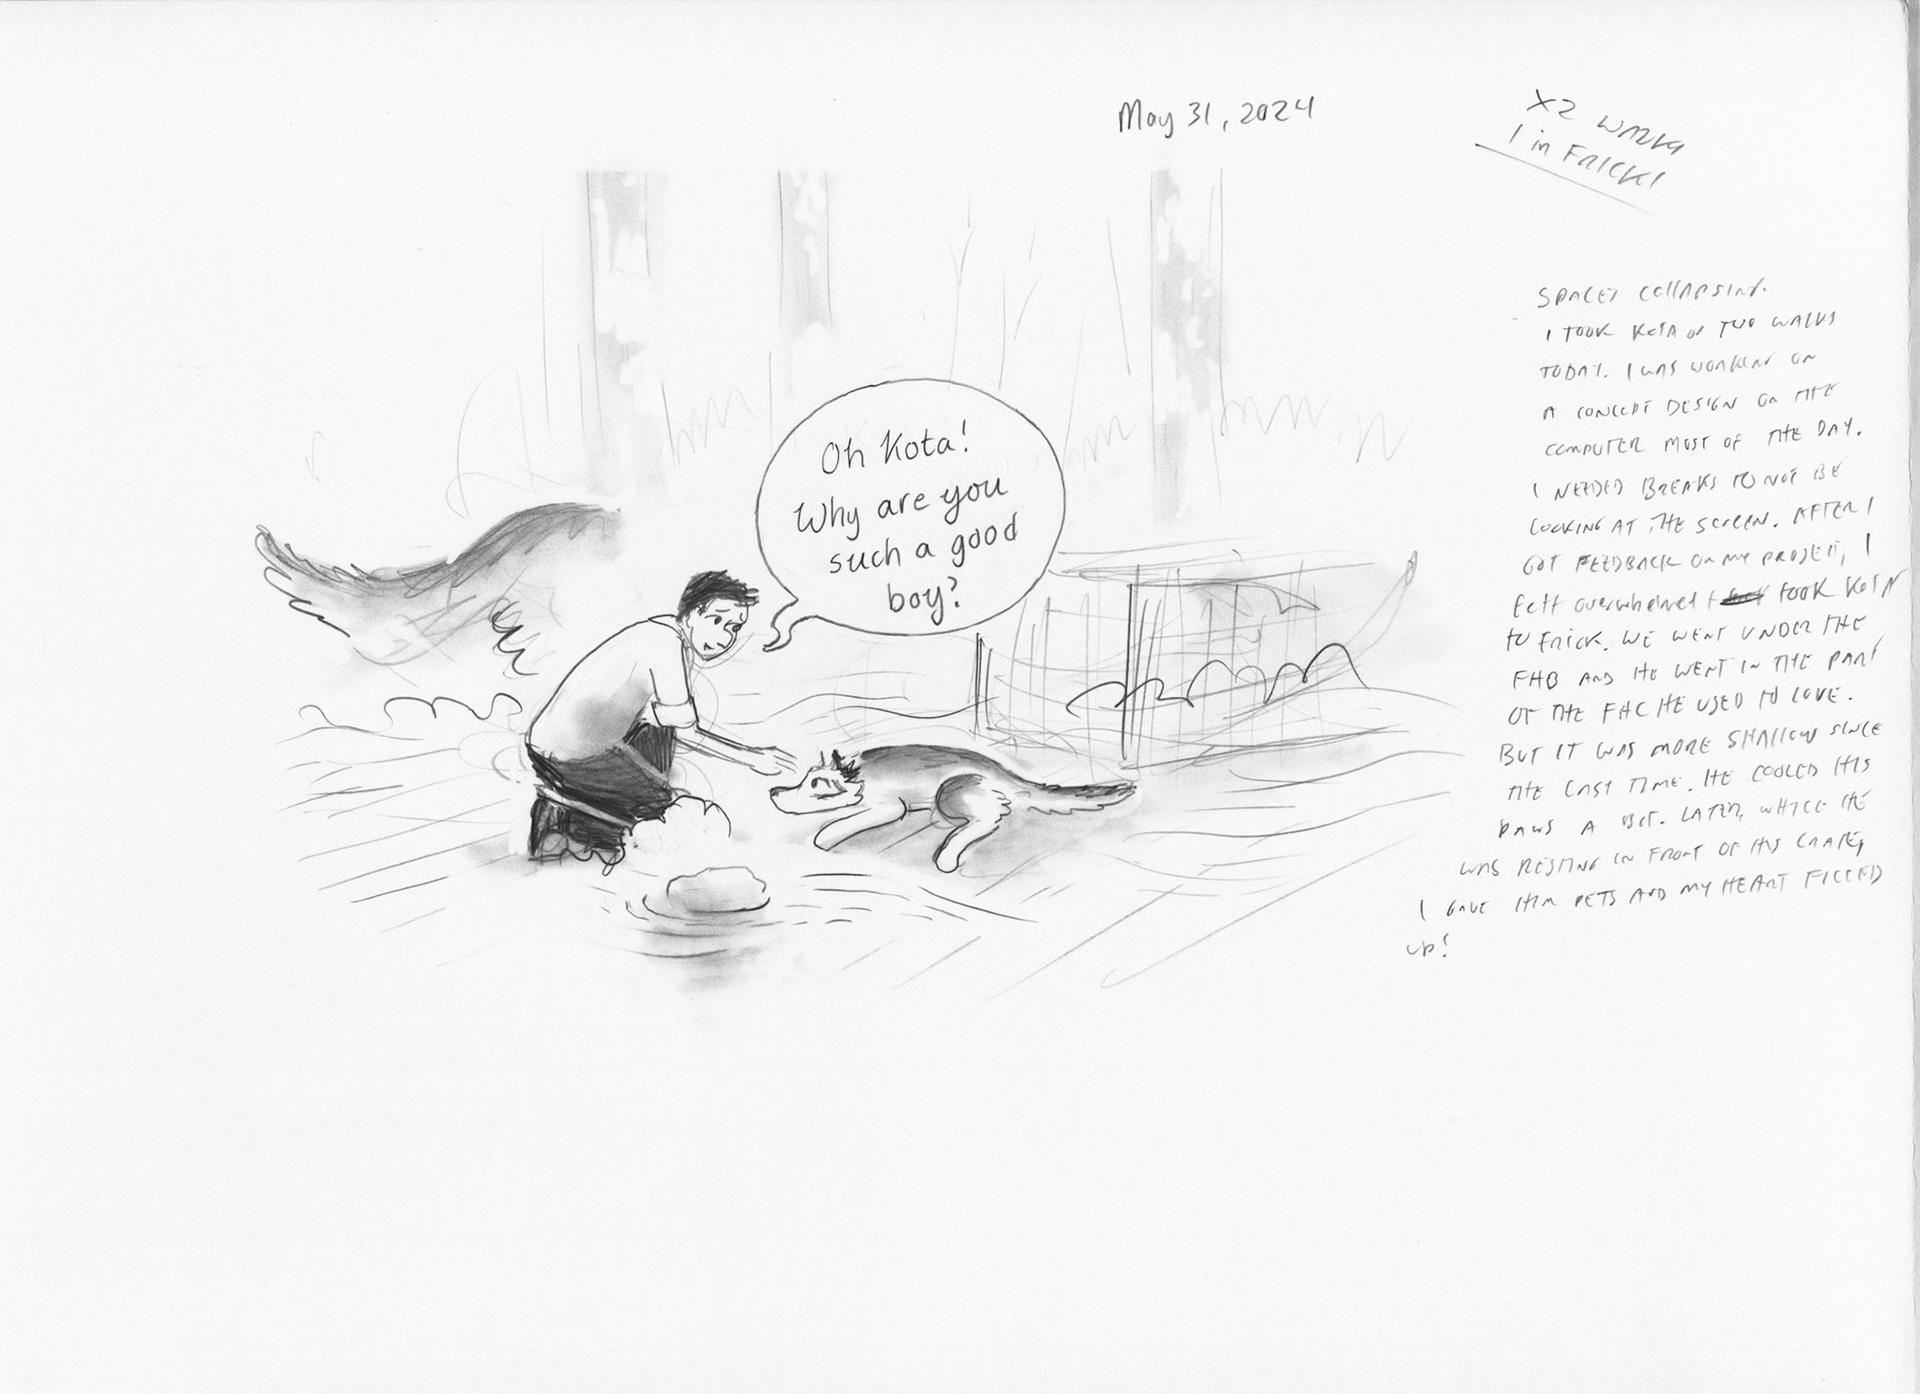 May 31, 2024
X2 WALKS
1 in FRICK!
Oh Kota!
Why are you
such a good
boy?
SPACES COLLAPSING.
I TOOK KOTA ON TWO WALKS
TODAY. I WAS WORKING ON
A CONCEPT DESIGN ON THE
COMPUTER MOST OF THE DAY.
I NEEDED BREAKS TO NOT BE
LOOKING AT THE SCREEN. AFTER I
GOT FEEDBACK ON MY PROJECT, I
felt overwhelmed + took KOTA
TO FRICK. WE WENT UNDER THE
FHB AND HE WENT IN THE PART
OF THE HE USED TO LOVE.
BUT IT WAS MORE SHALLOW SINCE
THE LAST TIME. HE COOLED HIS
PAWS A BIT. LATER, WHILE HE
WAS RESTING IN FRONT OF HIS CRATE,
I GAVE HIM PETS AND MY HEART FILLED
UP!